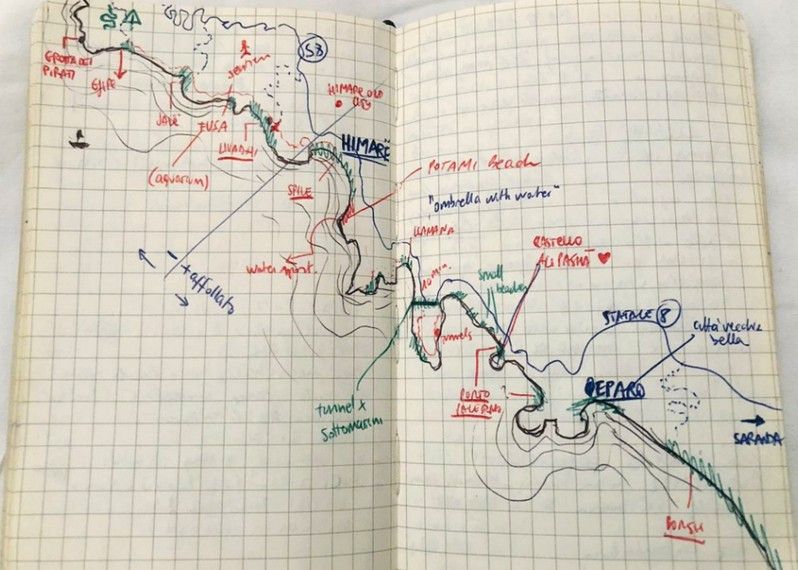 S8
GROTTA DEI
PIRATI
GJIPE
JALË
sentieri
HIMARE OLD
CITY
FUSA
(aquarium)
LIVADHI
HIMARË
SPILE
POTAMI Beach
"ombrella with water"
LLAMANA
water sport.
- + affollato
10 min
small
beaches
CASTELLO
ALI PASHA ♥
tunnels
STATALE 8
città vecchia
bella
tunnel x
sottomarini
PORTO
PALERMO
QEPARO
SARANDA
BORSH